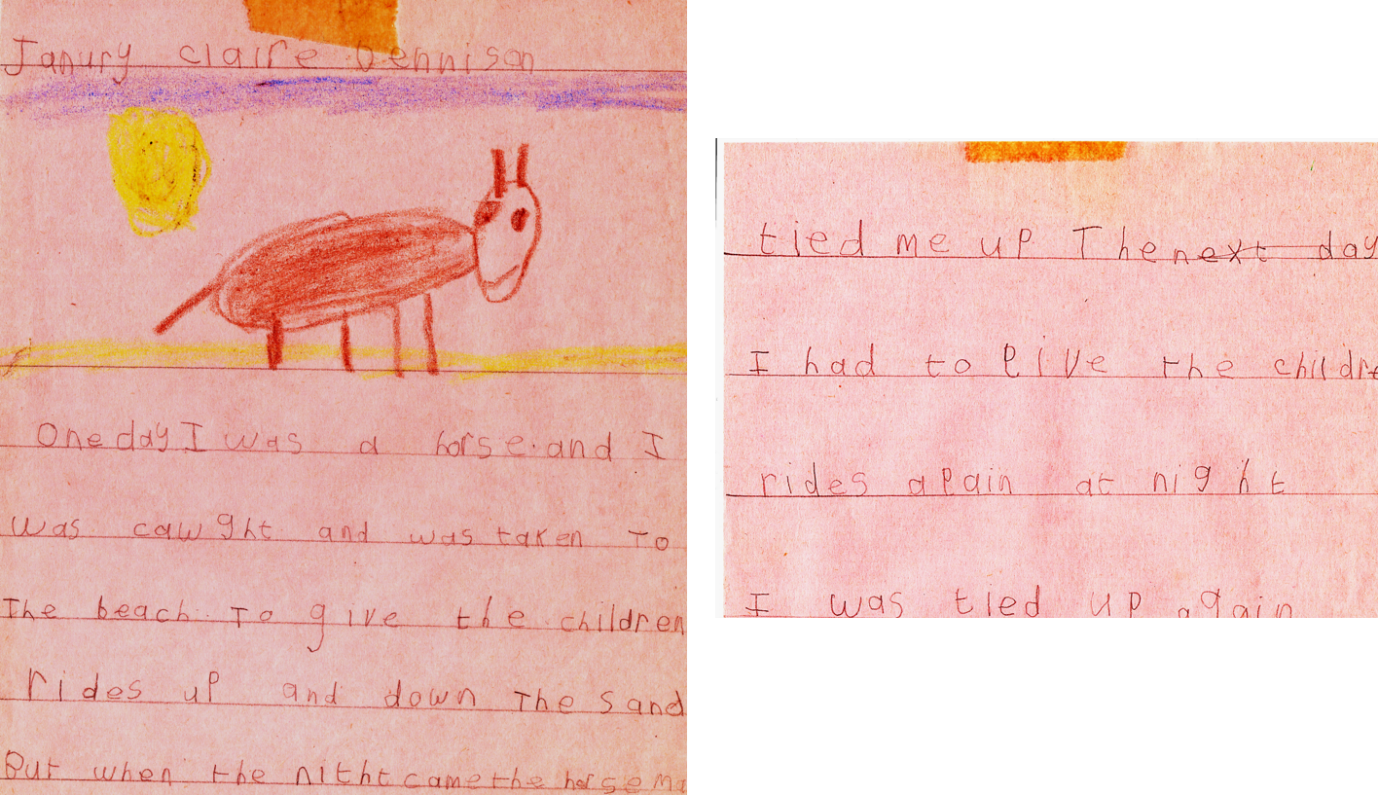 Janury claire Dennison
One day I was a horse. and I
was cawght and was taken to
The beach To give the children
rides up and down The sand
But when the nitht came the horse ma
tied me up The next day
I had to give the childre
rides again at night
I was tied up again